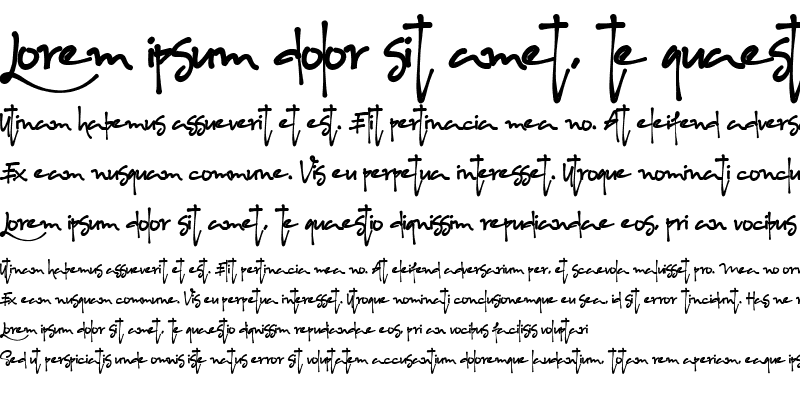 Lorem ipsum dolor sit amet, te quaest
Utinam habemus assueverit et est. Elit pertinacia mea no. At eleifend advers
Ex eam nusquam commune. Vis eu perpetua interesset. Utroque nominati conclu
Lorem ipsum dolor sit amet, te quaestio dignissim repudiandae eos, pri an vocibus
Utinam habemus assueverit et est. Elit pertinacia mea no. At eleifend adversarium per, et scaevola maluisset pro. Mea no orn
Ex eam nusquam commune. Vis eu perpetua interesset. Utroque nominati conclusionemque eu sea, id sit error tincidunt. Has ne
Lorem ipsum dolor sit amet, te quaestio dignissim repudiandae eos, pri an vocibus facilisis voluptari
Sed ut perspiciatis unde omnis iste natus error sit voluptatem accusantium doloremque laudantium. Totam rem aperiam, eaque ips